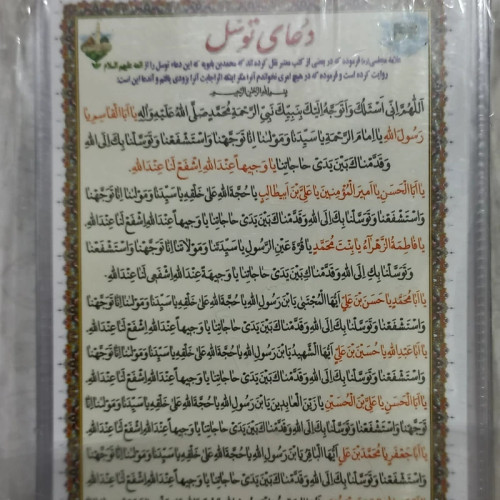 دعای توسل
علامه مجلسی (ره) فرموده که در بعضی از کتب معتبر نقل کرده اند که محمد بن بابویه که این دعاء توسل را از ائمه علیهم السلام
روایت کرده است و فرموده که در هیچ امری نخواندم آنرا مگر اینکه اثر اجابت آنرا بزودی یافتم و آن دعا این است:
بسم الله الرحمن الرحیم
اَللّٰهُمَّ اِنّی اَسْئَلُکَ وَاَتَوَجَّهُ اِلَیْکَ بِنَبِیِّکَ نَبِیِّ الرَّحْمَةِ مُحَمَّدٍ صَلَّی اللهُ عَلَیْهِ وَآلِهِ یا اَبَا الْقاسِمِ یا
رَسُولَ اللهِ یا اِمامَ الرَّحْمَةِ یا سَیِّدَنا وَمَوْلٰنا اِنّا تَوَجَّهْنا وَاسْتَشْفَعْنا وَتَوَسَّلْنا بِکَ اِلَی اللهِ
وَقَدَّمْناکَ بَیْنَ یَدَیْ حاجاتِنا یا وَجیهاً عِنْدَ اللهِ اِشْفَعْ لَنا عِنْدَ اللهِ.
یا اَبَا الْحَسَنِ یا اَمیرَ الْمُؤْمِنینَ یا عَلِیَّ بْنَ اَبیطالِبٍ یا حُجَّةَ اللهِ عَلٰی خَلْقِهِ یا سَیِّدَنا وَمَوْلٰنا اِنّا تَوَجَّهْنا
وَاسْتَشْفَعْنا وَتَوَسَّلْنا بِکَ اِلَی اللهِ وَقَدَّمْناکَ بَیْنَ یَدَیْ حاجاتِنا یا وَجیهاً عِنْدَ اللهِ اِشْفَعْ لَنا عِنْدَ اللهِ.
یا فاطِمَةُ الزَّهْراءُ یا بِنْتَ مُحَمَّدٍ یا قُرَّةَ عَیْنِ الرَّسُولِ یا سَیِّدَتَنا وَمَوْلاتَنا اِنّا تَوَجَّهْنا وَاسْتَشْفَعْنا
وَتَوَسَّلْنا بِکِ اِلَی اللهِ وَقَدَّمْناکِ بَیْنَ یَدَیْ حاجاتِنا یا وَجیهَةً عِنْدَ اللهِ اِشْفَعی لَنا عِنْدَ اللهِ.
یا اَبا مُحَمَّدٍ یا حَسَنَ بْنَ عَلِیٍّ اَیُّهَا الْمُجْتَبٰی یَابْنَ رَسُولِ اللهِ یا حُجَّةَ اللهِ عَلٰی خَلْقِهِ یا سَیِّدَنا وَمَوْلٰنا اِنّا تَوَجَّهْنا
وَاسْتَشْفَعْنا وَتَوَسَّلْنا بِکَ اِلَی اللهِ وَقَدَّمْناکَ بَیْنَ یَدَیْ حاجاتِنا یا وَجیهاً عِنْدَ اللهِ اِشْفَعْ لَنا عِنْدَ اللهِ.
یا اَبا عَبْدِ اللهِ یا حُسَیْنَ بْنَ عَلِیٍّ اَیُّهَا الشَّهیدُ یَابْنَ رَسُولِ اللهِ یا حُجَّةَ اللهِ عَلٰی خَلْقِهِ یا سَیِّدَنا وَمَوْلٰنا اِنّا تَوَجَّهْنا
وَاسْتَشْفَعْنا وَتَوَسَّلْنا بِکَ اِلَی اللهِ وَقَدَّمْناکَ بَیْنَ یَدَیْ حاجاتِنا یا وَجیهاً عِنْدَ اللهِ اِشْفَعْ لَنا عِنْدَ اللهِ.
یا اَبَا الْحَسَنِ یا عَلِیَّ بْنَ الْحُسَیْنِ یا زَیْنَ الْعابِدینَ یَابْنَ رَسُولِ اللهِ یا حُجَّةَ اللهِ عَلٰی خَلْقِهِ یا سَیِّدَنا وَمَوْلٰنا اِنّا
تَوَجَّهْنا وَاسْتَشْفَعْنا وَتَوَسَّلْنا بِکَ اِلَی اللهِ وَقَدَّمْناکَ بَیْنَ یَدَیْ حاجاتِنا یا وَجیهاً عِنْدَ اللهِ اِشْفَعْ لَنا عِنْدَ اللهِ.
یا اَبا جَعْفَرٍ یا مُحَمَّدَ بْنَ عَلِیٍّ اَیُّهَا الْباقِرُ یَابْنَ رَسُولِ اللهِ یا حُجَّةَ اللهِ عَلٰی خَلْقِهِ یا سَیِّدَنا وَمَوْلٰنا اِنّا تَوَجَّهْنا
وَاسْتَشْفَعْنا وَتَوَسَّلْنا بِکَ اِلَی اللهِ وَقَدَّمْناکَ بَیْنَ یَدَیْ حاجاتِنا یا وَجیهاً عِنْدَ اللهِ اِشْفَعْ لَنا عِنْدَ اللهِ.